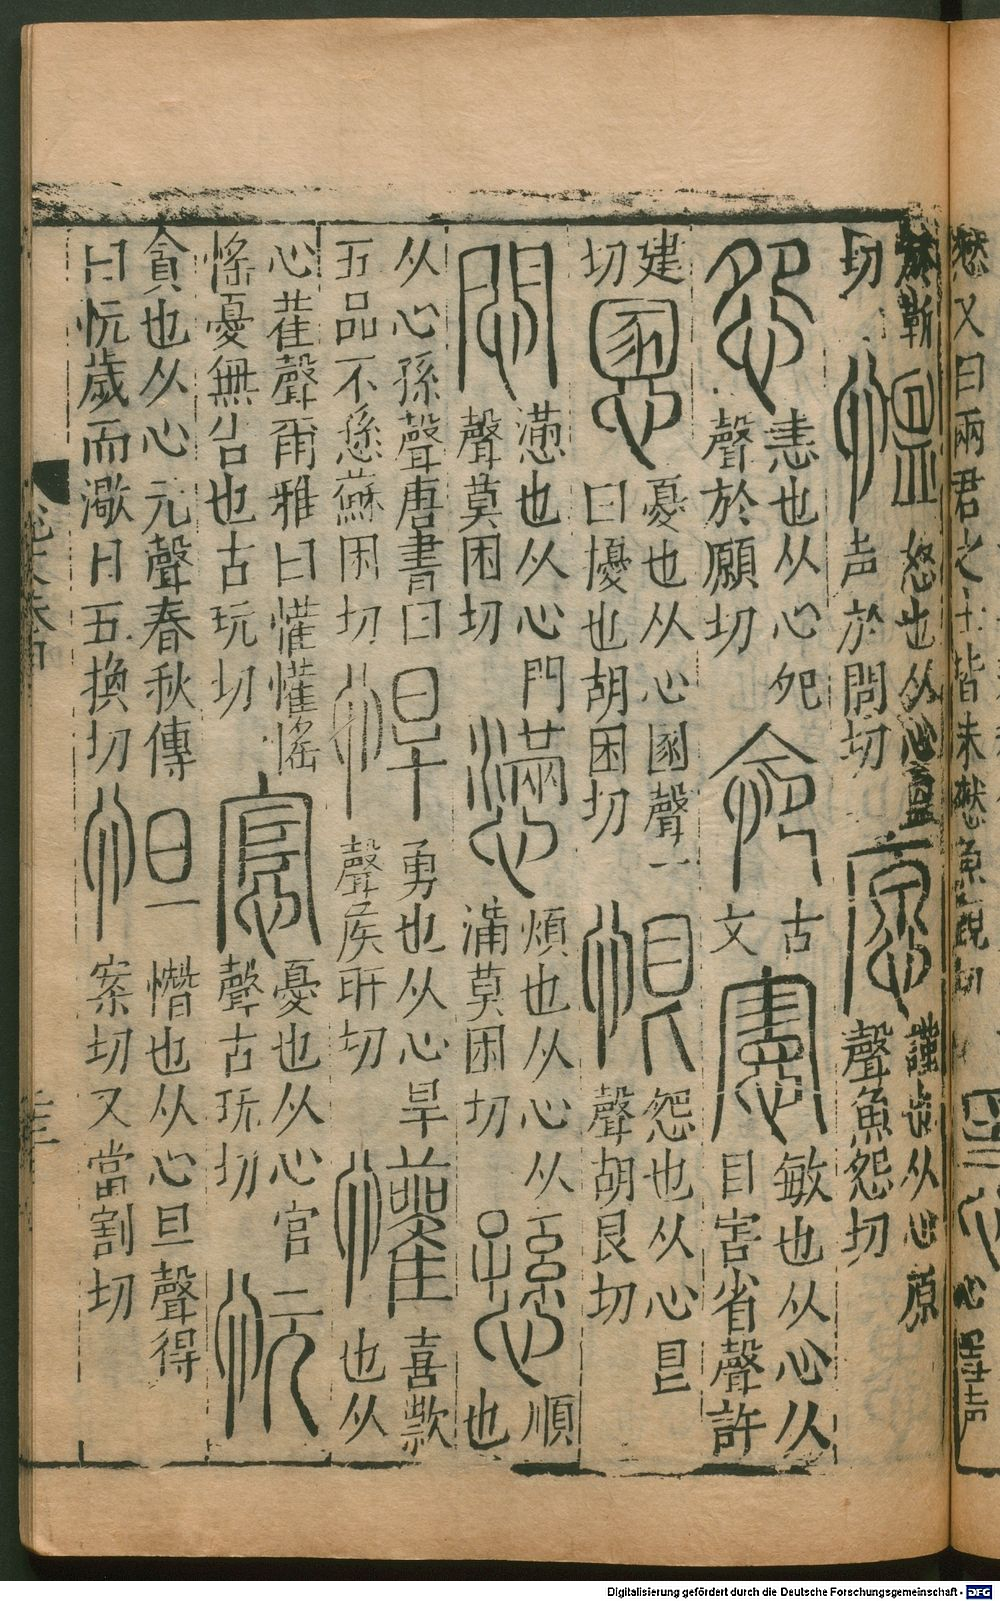 憖又曰兩君之士皆未憖魚覲切
於靳
切
慍
怒也从心𥁕
声於問切
愿
謹也从心原
聲魚怨切
怨
恚也从心夗
聲於願切
古
文
憲
敏也从心从
目害省聲許
建
切
慁
憂也从心圂聲一
曰擾也胡困切
恨
怨也从心艮
聲胡艮切
悶
懣也从心門
聲莫困切
懣
煩也从心从
滿莫困切
愻
順
也
从心孫聲唐書曰
五品不愻蘇困切
悍
勇也从心旱
聲侯旰切
懽
喜款
也从
心雚聲爾雅曰懽懽愮
愮憂無告也古玩切
悹
憂也从心官
聲古玩切
忨
貪也从心元聲春秋傳
曰忨歲而㵣日五換切
怛
憯也从心旦聲得
案切又當割切
Digitalisierung gefördert durch die Deutsche Forschungsgemeinschaft - DFG